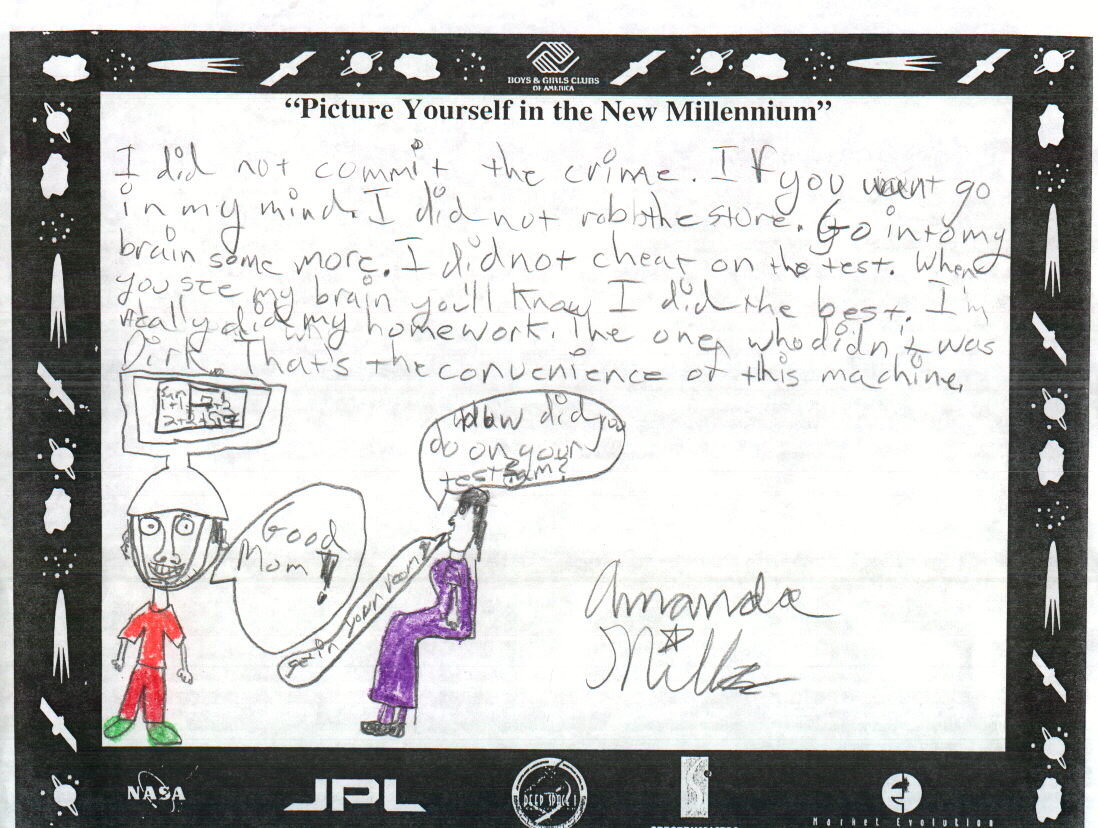 BOYS & GIRLS CLUBS
OF AMERICA
“Picture Yourself in the New Millennium”
I did not commit the crime. If you want go
in my mind. I did not robb the store. Go into my
brain some more. I did not cheat on the test. When
you see my brain you'll know I did the best. I'm
really did my homework. The one who didn't was
Dirk. That's the convenience of this machine.
1+1
2+2
How did you
do on your
test
Good
Mom!
Amanda
NASA
JPL
DEEP SPACE 1
Market Evolution